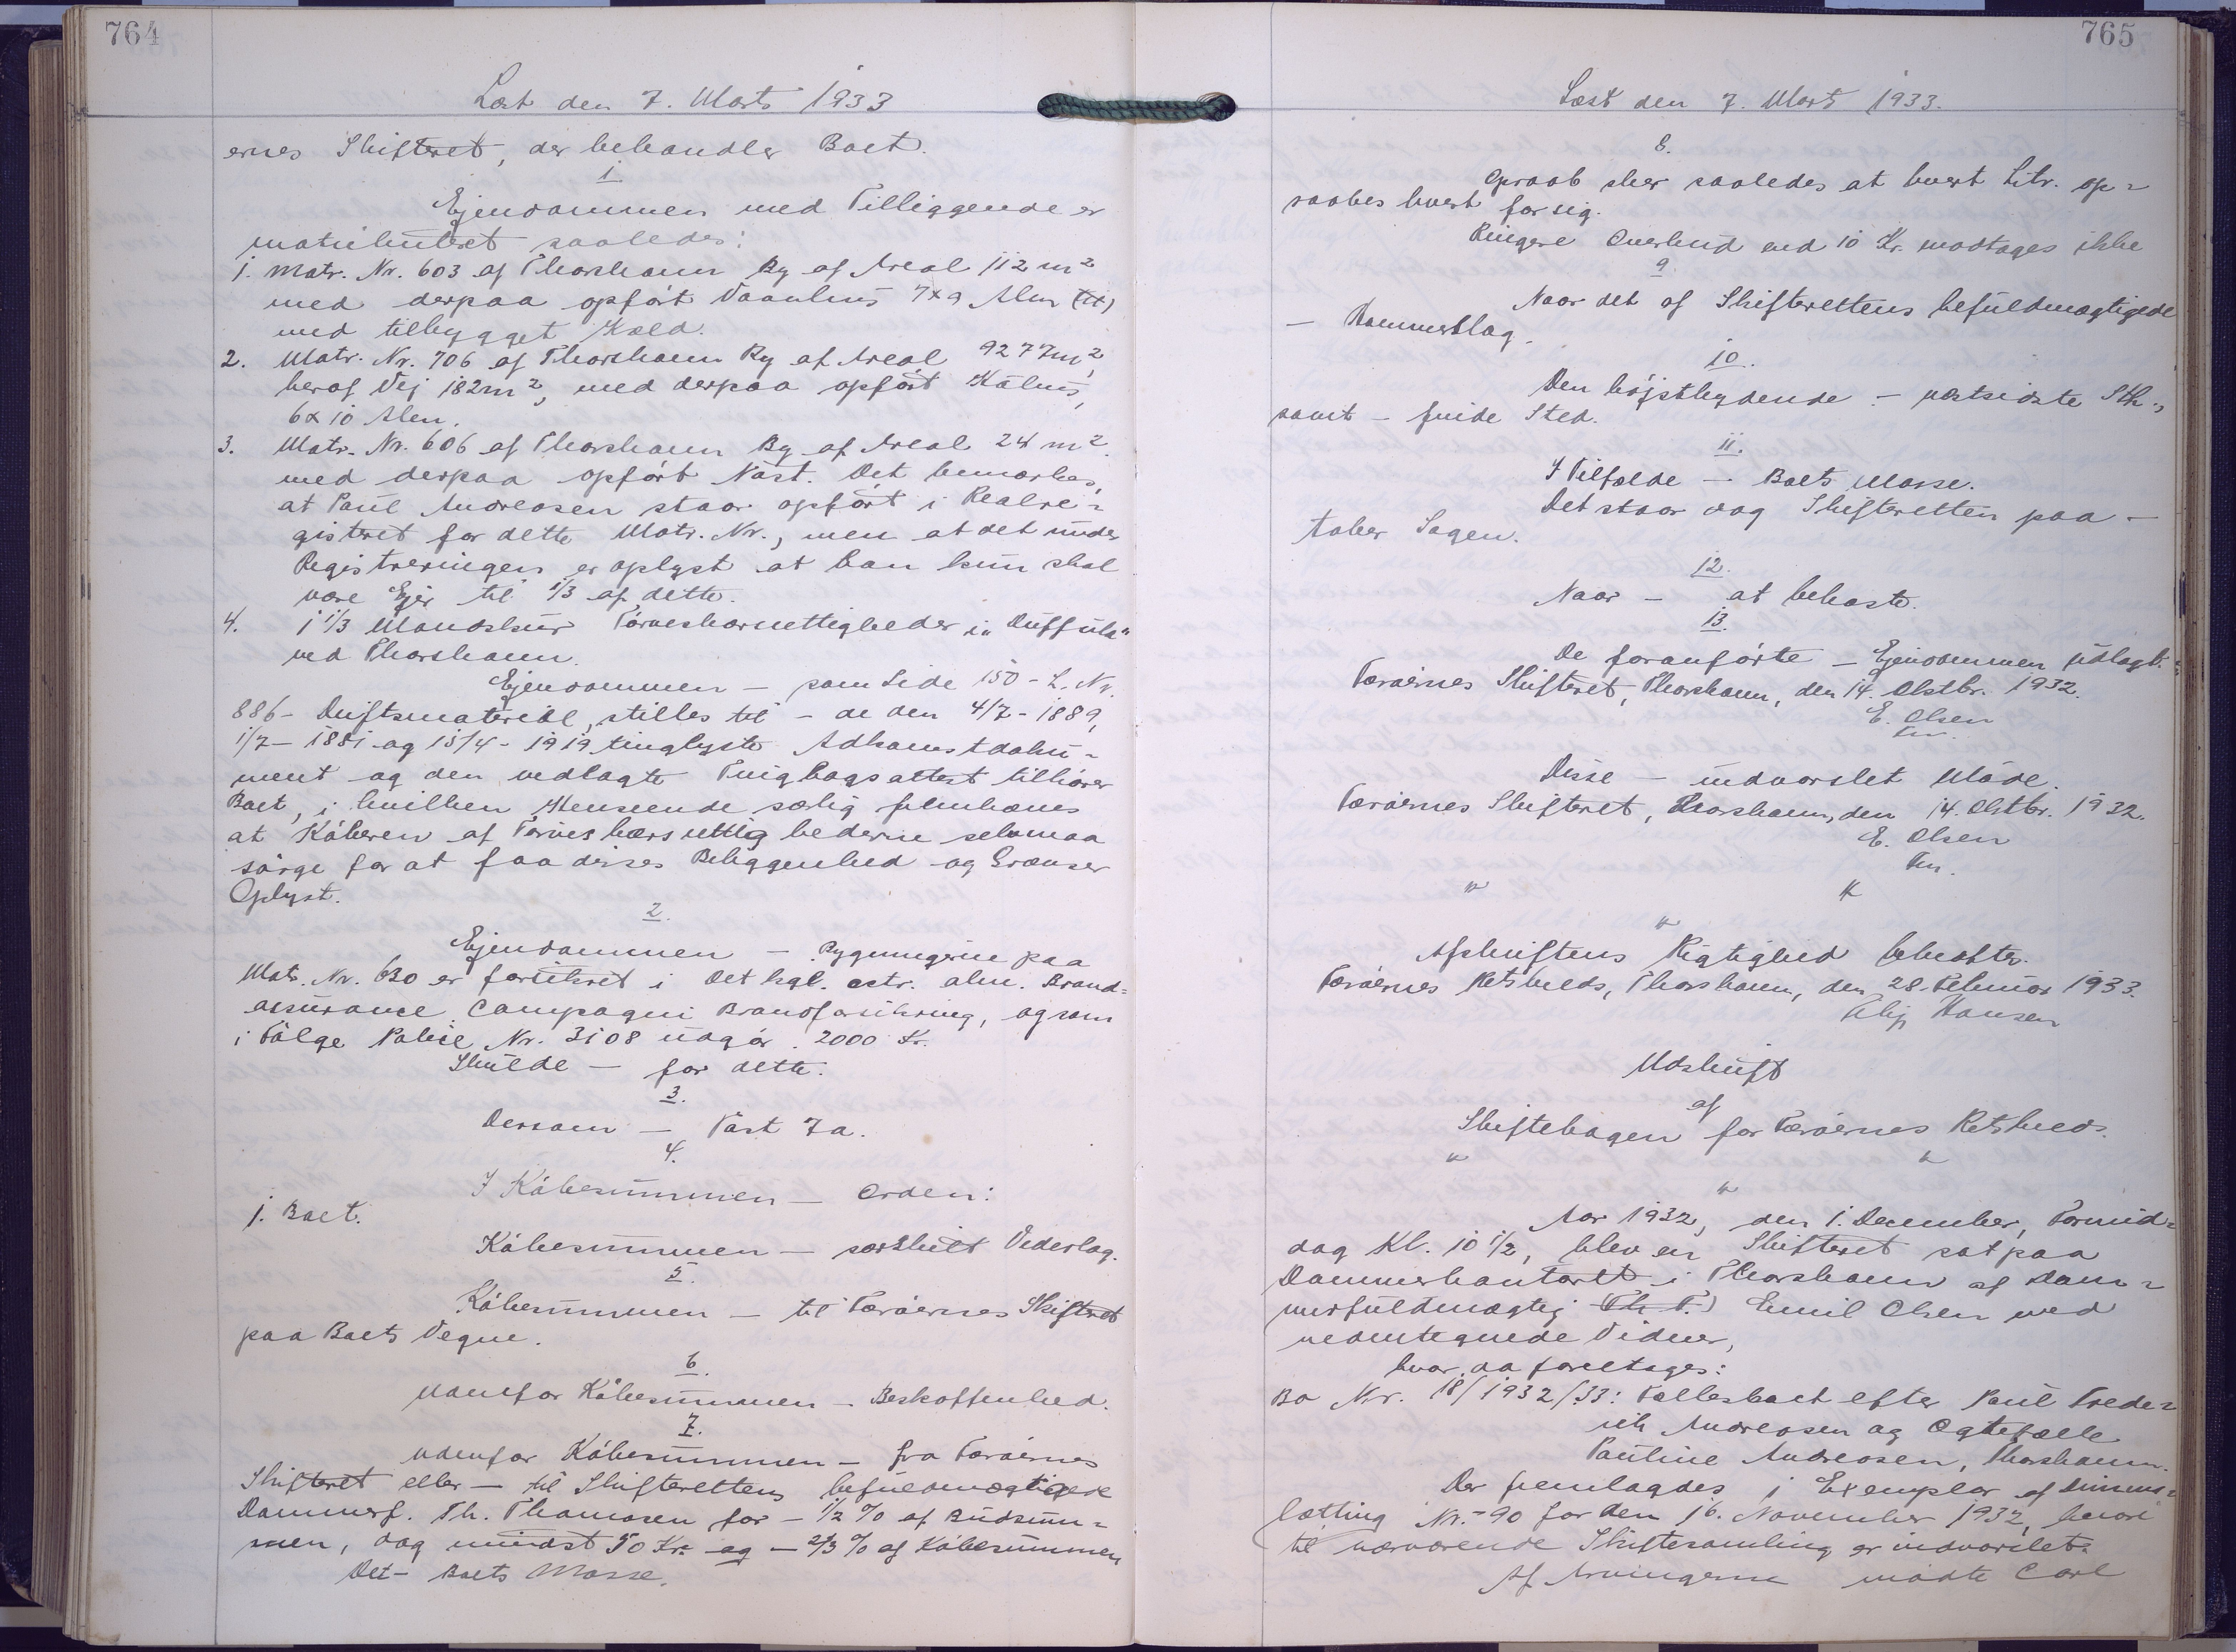 764
Læst den 7. Marts 1933
ernes Skifteret, der behandler Boet.
1
Ejendommen med Tilliggende er
matrikuleret saaledes:
1. Matr. Nr. 603 af Thorshavn By af Areal 112 m²
med derpaa opført Vaanhus 7x9 Alen
med tilbygget Kæld.
2. Matr. Nr. 706 af Thorshavn By af Areal 9277 m²,
heraf Vej 182 m², med derpaa opført Kohus,
6 x 10 Alen.
3. Matr. Nr. 606 af Thorshavn By af Areal 24 m²
med derpaa opført Nøst. Det bemærkes,
at Paul Andreasen staar opført i Realre=
gisteret for dette Matr. Nr., men at det under
Registreringen er oplyst at han kun skal
være Ejer til 1/3 af dette.
4. 1 1/3 Mandskur Tørveskærrettigheder i "Duffula"
ved Thorshavn.
Ejendommen — som Side 150 - L. Nr.
886 - Driftsmateriel, stilles til - de den 4/7 - 1889,
1/7 - 1881 og 15/4 - 1919 tinglyste Adkomstdoku=
ment og den vedlagte Tingbogsattest tilhører
Boet, i hvilken Henseende særlig fremhæves
at Køberen af Tørveskærsrettighederne selv maa
sørge for at faa disses Beliggenhed og Grænser
Oplyst.
2.
Ejendommen — Bygningerne paa
Matr. Nr. 630 er forsikret i Det kgl. octr. alm. Brand=
assurance Compagni Brandforsikring, og som
i Følge Police Nr. 3108 udgør 2000 Kr.
Skulde — for dette.
3.
Dersom — Post 7a.
4.
I Købesummen — Orden:
1. Boet.
Købesummen — særskilt Vederlag.
5.
Købesummen — til Færøernes Skifteret
paa Boets Vegne.
6.
Udenfor Købesummen — Beskaffenhed.
7.
Udenfor Købesummen — fra Færøernes
Skifteret eller — til Skifterettens befuldmægtigede
Dommerf. Th. Thomasen for — 1/2 % af Budsum=
men, dog mindst 50 Kr. og — 2/3 % af Købesummen
Det — Boets Masse.
765
Læst den 7. Marts 1933.
8.
Opraab sker saaledes at hvert Litr. op=
raabes hvert for sig.
Ringere Overbud end 10 Kr. modtages ikke
9
Naar det af Skifterettens befuldmægtigede
— Hammerslag.
10.
Den højstbydende — næstsidste Stk.,
samt — finde Sted.
11.
I Tilfælde — Boets Masse.
Det staar dog Skifteretten paa —
taber Sagen.
12.
Naar — at bekoste.
13.
De foranførte — Ejendommen udlagt.
Færøernes Skifteret, Thorshavn, den 14. Oktbr. 1932.
E. Olsen
Fm.
Disse — indvarslet Møde.
Færøernes Skifteret, Thorshavn, den 14. Oktbr. 1932.
E. Olsen
Fm.
Afskriftens Rigtighed bekræftes.
Færøernes Retskreds, Thorshavn, den 28. Februar 1933.
Hansen
Udskrift
af
Skiftebogen for Færøernes Retskreds.
Aar 1932, den 1. December, Formid=
dag Kl. 10 1/2, blev en Skifteret sat paa
Dommerkontoret i Thorshavn af Dom=
merfuldmægtig (Th. T.) Emil Olsen med
nedentegnede Vidner,
hvor da foretages:
Bo Nr. 18/1932/33: Fællesboet efter Paul Frede=
rik Andreasen og Ægtefælle
Pauline Andreasen, Thorshavn.
Der fremlagdes 1 Exemplar af Dimma=
lætting Nr. 90 for den 16. November 1932, hvori
til nærværende Skiftesamling er indvarslet.
Af Arvingerne mødte Carl